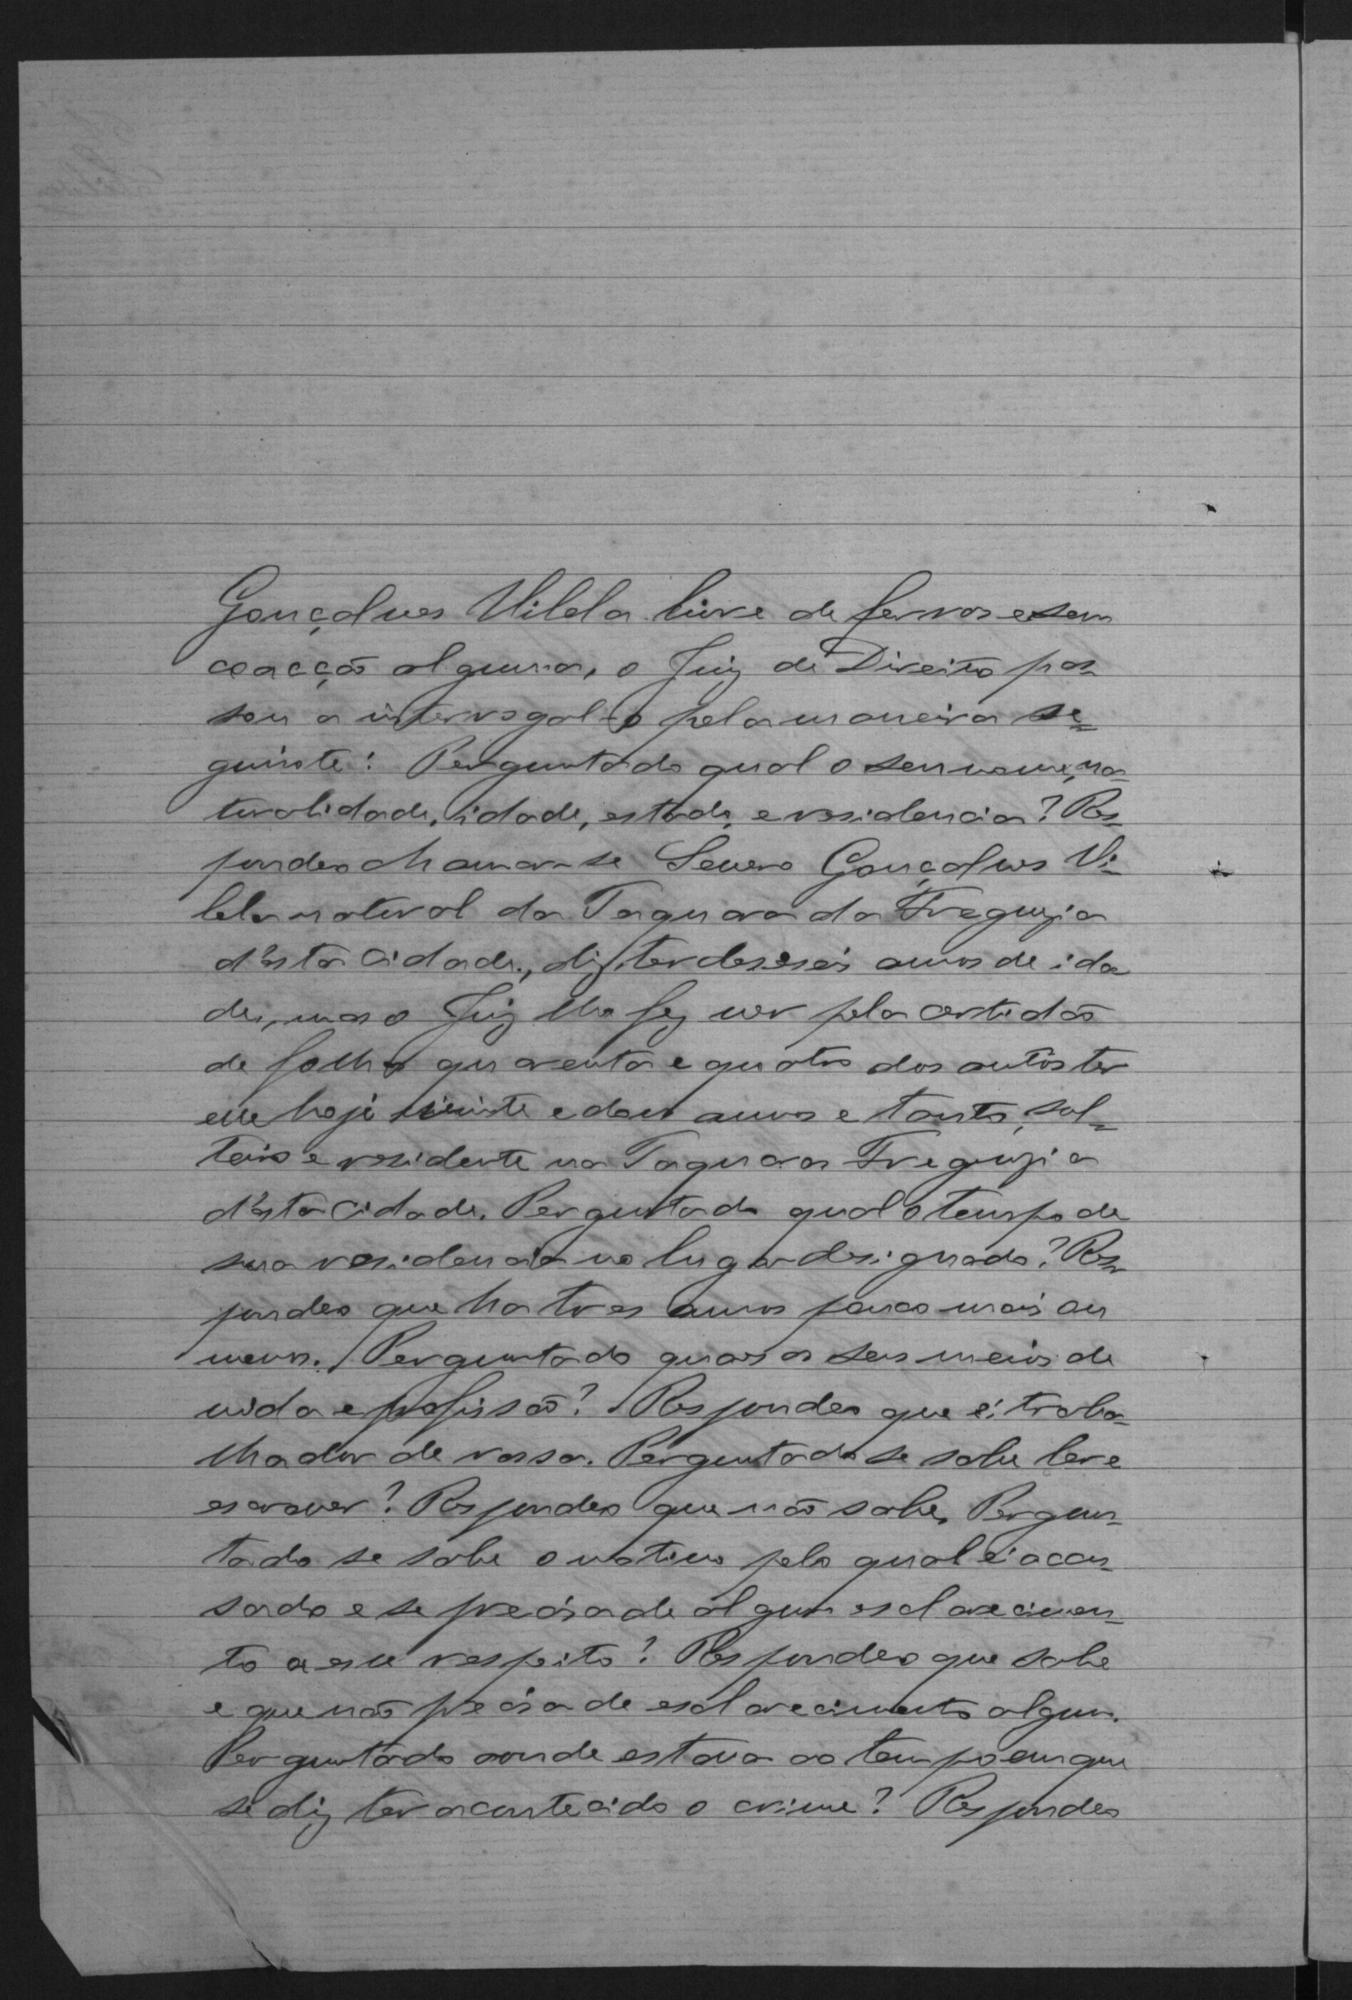 Gonçalves Vilela livre de ferros e sem
coacção alguma, o Juiz de Direito pas
sou a interrogal-o pela maneira se=
guinte: Perguntado qual o seu nome, na-
turalidade, idade, estado, e residencia? Res-
pondeo chamar-se Severo Gonçalves Vi-
lela natural da Taquara da Freguezia
d'esta cidade, diz ter deseseis annos de ida
de, mas o Juiz lhe fez ver pela certidão
de folhas quarenta e quatro dos autos ter
elle hoje vinte e dous annos e tanto, sol=
teiro e residente na Taquara Freguezia
d'esta cidade. Perguntado qual o tempo de
sua residencia no lugar designado? Res-
pondeo que ha tres annos pouco mais ou
menos. Perguntado quaes os seus meios de
vida e profissão? Respondeo que é traba-
lhador de rossa. Perguntado se sabe ler e
escrever? Respondeo que não sabe. Pergun-
tado se sabe o motivo pelo qual é accu-
sado e se precisa de algum esclarecimen-
to a esse respeito? Respondeo que sabe
e que não precisa de esclarecimento algum.
Perguntado aonde estava ao tempo em que
se diz ter acontecido o crime? Respondeo